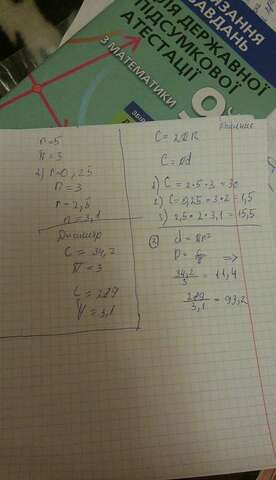 ЗАННЯ
ЗАВДАНЬ
ДЛЯ ДЕРЖАВНОЇ
ПІДСУМКОВОЇ
АТЕСТАЦІЇ
З МАТЕМАТИКИ
Решение
r=5
π=3
2) r=0,25
π=3
r=2,5
π=3,1
Диаметр
C=34,2
π=3
C=289
π=3,1
C=2πR
C=πd
1) C=2·5·3=30
2) C=0,25·3·2=1,5
3) 2,5·2·3,1=15,5
3
D= =>
34,2/3=11,4
289/3,1=93,2